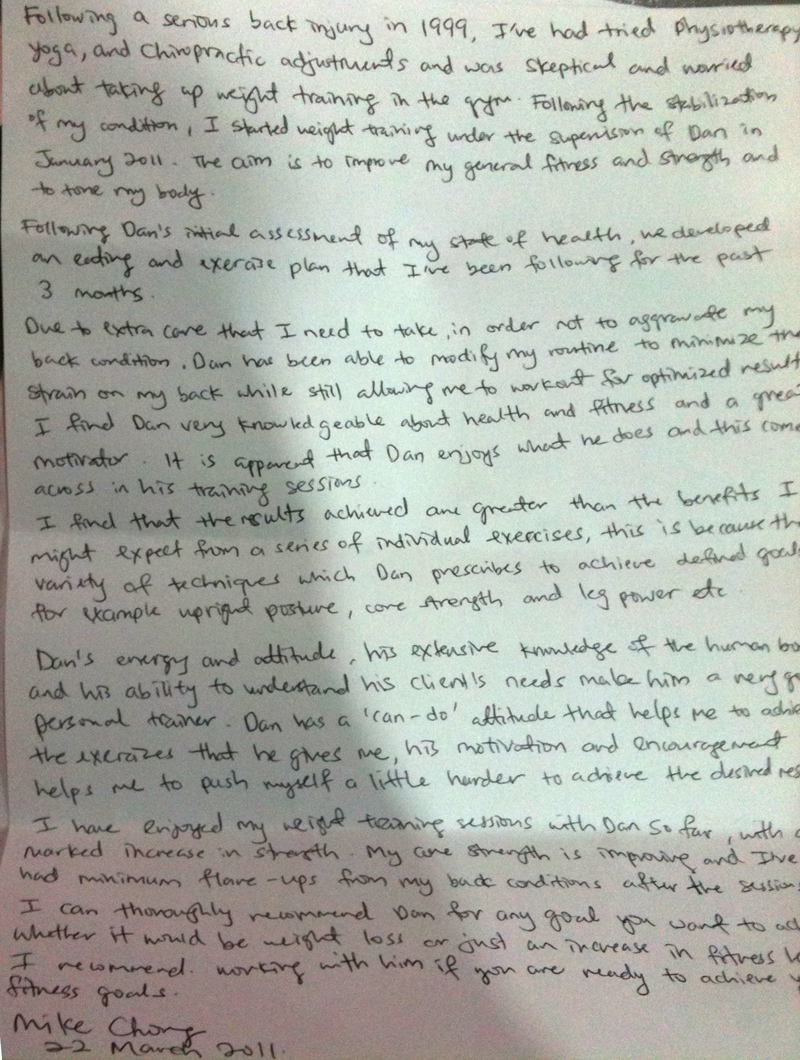 Following a serious back injury in 1999, I've had tried Physiotherapy
yoga, and Chiropractic adjustments and was skeptical and worried
about taking up weight training in the gym. Following the stabilization
of my condition, I started weight training under the supervision of Dan in
January 2011. The aim is to improve my general fitness and strength and
to tone my body.
Following Dan's initial assessment of my state of health, we developed
an eating and exercise plan that I've been following for the past
3 months.
Due to extra care that I need to take, in order not to aggravate my
back condition, Dan has been able to modify my routine to minimize the
strain on my back while still allowing me to workout for optimized result
I find Dan very knowledgeable about health and fitness and a great
motivator. It is apparent that Dan enjoys what he does and this come
across in his training sessions.
I find that the results achieved are greater than the benefits I
might expect from a series of individual exercises, this is because th
variety of techniques which Dan prescribes to achieve defined goals
for example upright posture, core strength and leg power etc.
Dan's energy and attitude, his extensive knowledge of the human bo
and his ability to understand his client's needs make him a very go
personal trainer. Dan has a 'can-do' attitude that helps me to achie
the exercizes that he gives me, his motivation and encouragement
helps me to push myself a little harder to achieve the desired res
I have enjoyed my weight training sessions with Dan so far, with a
marked increase in strength. My core strength is improving and I've
had minimum flare-ups from my back conditions after the session
I can thoroughly recommend Dan for any goal you want to ach
whether it would be weight loss or just an increase in fitness le
I recommend. working with him if you are ready to achieve y
fitness goals.
Mike Chong
22 March 2011.